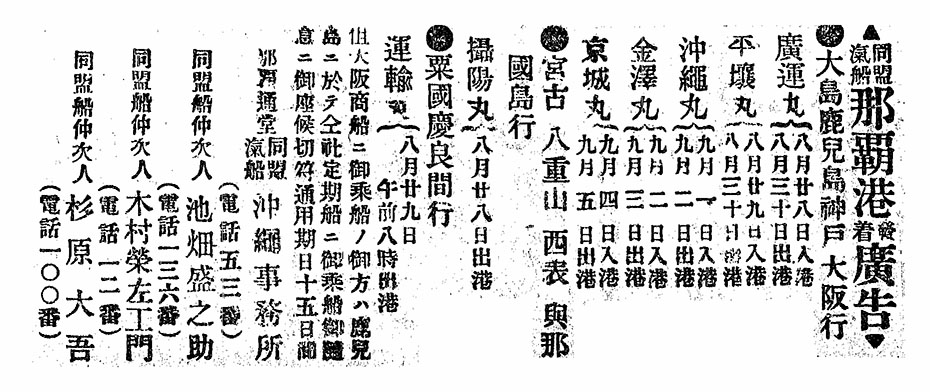 ▲同盟汽船那覇港發着廣告▼
●大島鹿兒島神戸大阪行
廣運丸 八月廿八日入港 八月三十日出港
平壤丸 八月廿九日入港 八月三十日出港
沖繩丸 九月一日入港 九月二日出港
金澤丸 九月二日入港 九月三日出港
京城丸 九月四日入港 九月五日出港
●宮古 八重山 西表 與那
國島行
攝陽丸 八月廿八日出港
●粟國慶良間行
運輸丸 八月廿九日 午前八時出港
但大阪商船ニ御乘船ノ御方ハ鹿兒
島ニ於テ仝社定期船ニ御乘船御隨
意ニ御座候切符通用期日十五日間
那覇通堂 同盟汽船 沖繩事務所
(電話五三番)
同盟船仲次人 池畑盛之助
(電話一三六番)
同盟船仲次人 木村榮左工門
(電話一二番)
同盟船仲次人 杉原大吾
(電話一〇〇番)